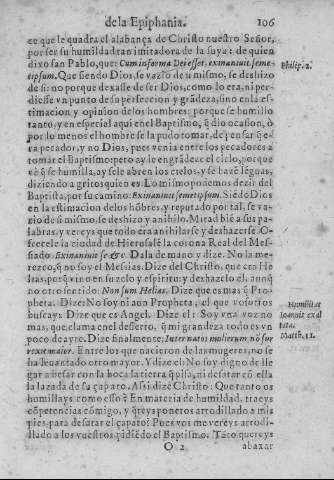 de la Epiphania. 106
ce que le quadra el alabança de Christo nuestro Señor,
por ser su humildad tan imitadora de la suya: de quien
dixo san Pablo, que: Cum in forma Dei esset, exinaniuit seme
tipsum. Que siendo Dios, se vazio de si mismo, se deshizo
de si: no porque dexasse de ser Dios, como lo era, ni per-
diesse vn punto de su perfeccion y grādeza, sino en la es-
timacion y opinion de los hombres: porque se humillò
tanto, y en especial aqui en el Baptismo, q̃ dio ocasion, à
por lo menos el hombre se la pudo tomar, de pensar q̃ e-
ra pecador, y no Dios, pues venia entre los pecadores a
tomar el Baptismo: pero ay le engrādece el cielo, porque
vē q̃ se humilla, ay se le abren los cielos, y se hazē lēguas,
diziendo a gritos quien es. Lo mismo podemos dezir del
Baptista, por su camino: Exinaniuit semetipsum. Siēdo Dios
en la estimacion de los hōbres, y reputado por tal, se va-
zio de si mismo, se deshizo y anihilò. Mirad biē a sus pa-
labras, y vereys que todo era anihilarse y deshazerse. O-
frecele la ciudad de Hierusalē la corona Real del Mes-
siado. Exinaniuit se &c. Dala de mano y dize. No la me-
rezco, q̃ no soy el Messias. Dize del Christo, que era He
lias, por q̃ vino en su zelo y espiritu: y deshazelo el, aunq̃
no en otro sentido. Non sum Helias. Dize que es mas q̃ Pro-
pheta. Dize: No soy ni aun Propheta, el que vosotros
buscays. Dize que es Angel. Dize el: Soy vna voz no
mas, que clama en el desierto, q̃ mi grandeza todo es vn
poco de ayre. Dize finalmente: Inter natos mulierum nō sur
rexit maior. Entre los que nacieron de las mugeres, no se
ha leuantado otro mayor. Y dize el: No soy digno de lle-
gar a besar con la boca la tierra q̃ pisa, ni desatar cō ella
la lazada de su çapato. Assi dizē Christo: Que tanto os
humillays como esso? En materia de humildad, traeys
cōpetencias cōmigo, y q̃reys poneros arrodillado a mis
pies, para desatar el çapato? Pues vos me vereys arrodi-
llado a los vuestros pidiēdo el Baptismo. Tāto quereys
O 2 abaxar
Philip. 2.
Humilitas
Ioannis exal
tata.
Matth. 11.